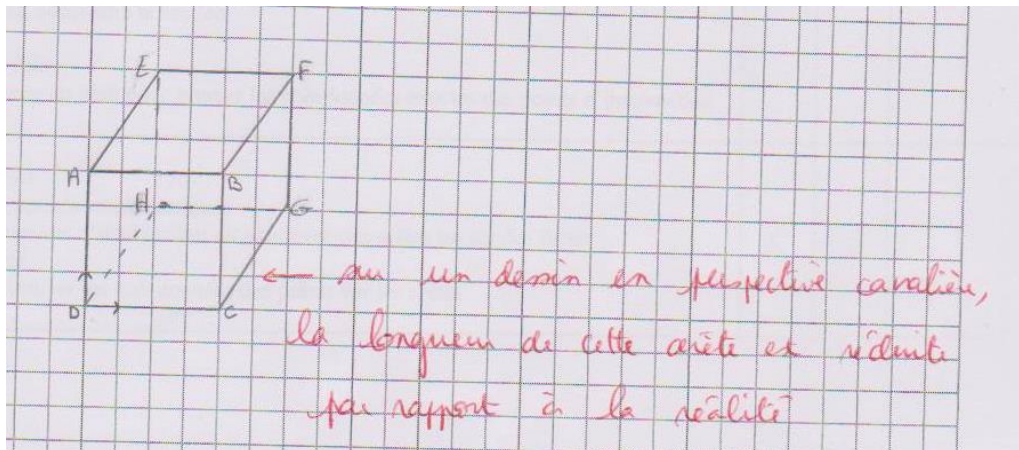 E F
A B
H G
D C
← sur un dessin en perspective cavalière,
la longueur de cette arête est réduite
par rapport à la réalité